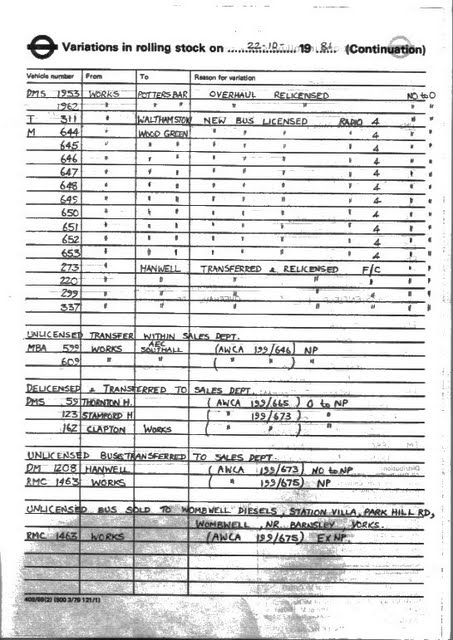 Variations in rolling stock on 22-10- 19 81. (Continuation)
Vehicle number From To Reason for variation
DMS 1953 WORKS POTTERS BAR OVERHAUL RELICENSED NO to O
1962 " " " " " "
T 311 " WALTHAMSTOW NEW BUS LICENSED RADIO 4 "
M 644 " WOOD GREEN " " " " 4 "
645 " " " " " " " 4 "
646 " " " " " " " 4 "
647 " " " " " " " 4 "
648 " " " " " " " 4 "
649 " " " " " " " 4 "
650 " " " " " " " 4 "
651 " " " " " " " 4 "
652 " " " " " " " 4 "
653 " " " " " " " 4 "
273 " HANWELL TRANSFERRED & RELICENSED F/C "
220 " " " " " "
299 " " " " " "
337 " " " " " "
UNLICENSED TRANSFER WITHIN SALES DEPT.
MBA 599 WORKS AEC SOUTHALL (AWCA 199/646) NP
609 " " ( " " ) "
DELICENSED & TRANSFERRED TO SALES DEPT.
DMS 59 THORNTON H. (AWCA 199/665) O to NP
123 STAMFORD H. ( " 199/673) "
162 CLAPTON WORKS ( " " ) "
UNLICENSED BUSES TRANSFERRED TO SALES DEPT.
DM 1208 HANWELL (AWCA 199/673) NO to NP
RMC 1463 WORKS ( " 199/675) NP
UNLICENSED BUS SOLD TO WOMBWELL DIESELS, STATION VILLA, PARK HILL RD,
WOMBWELL, NR. BARNSLEY, YORKS.
RMC 1463 WORKS (AWCA 199/675) EX NP.